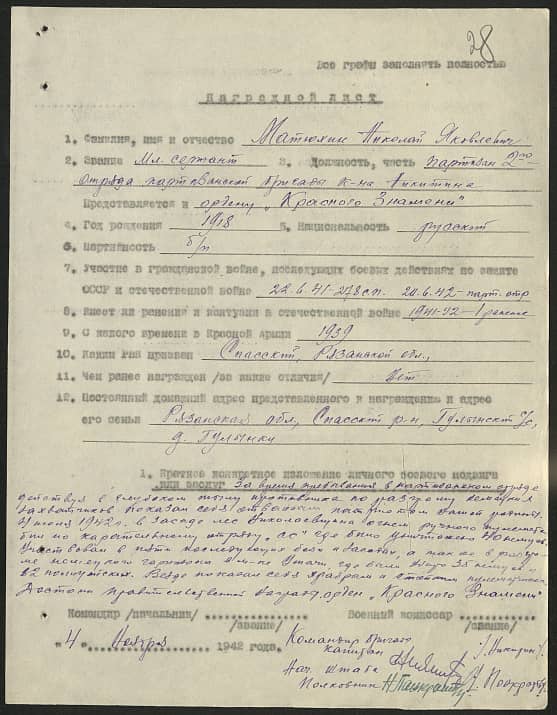 28
Все графы заполнять полностью
Наградной лист
1. Фамилия, имя и отчество Матюхин Николай Яковлевич
2. Звание Мл. сержант 3. Должность, часть партизан 2го
отряда партизанской бригады к-на Никитина
Представляется к ордену „Красного Знамени"
4. Год рождения 1918 5. Национальность русский
6. Партийность б/п
7. Участие в гражданской войне, последующих боевых действиях по защите
СССР и отечественной войне 22.6.41-278 сп. 20.6.42-парт. отр.
8. Имеет ли ранения и контузии в отечественной войне 1941-42-1
9. С какого времени в Красной Армии 1939
10. Каким РВК призван Спасский, Рязанской обл.,
11. Чем ранее награжден /за какие отличия/ Нет
12. Постоянный домашний адрес представленного к награждению и адрес
его семьи Рязанская обл., Спасский р-н, Гулынский с/с,
д. Гулынки
1. Краткое конкретное изложение личного боевого подвига
или заслуг За время пребывания в партизанском отряде
действуя в глубоком тылу противника по разгрому немецких
захватчиков показал себя отважным патриотом нашей родины.
июня 1942г. в засаде лес Николаевщина огнем ручного пулемета
бил по карательному отряду, где было уничтожено
Участвовал в пяти последующих боях и засадах, а также в разгро-
ме немецкого гарнизона в м-ке Ушачи, где было убито 35 немцев и
82 полицейских. Везде показал себя храбрым и стойким пулеметчиком
Достоин правительственной награды орден „Красного Знамени"
Командир /начальник/ Военный комиссар
/звание/ /звание/
„4" Ноября 1942 года. Командир бригады
капитан /Никитин/
Нач. штаба
Полковник